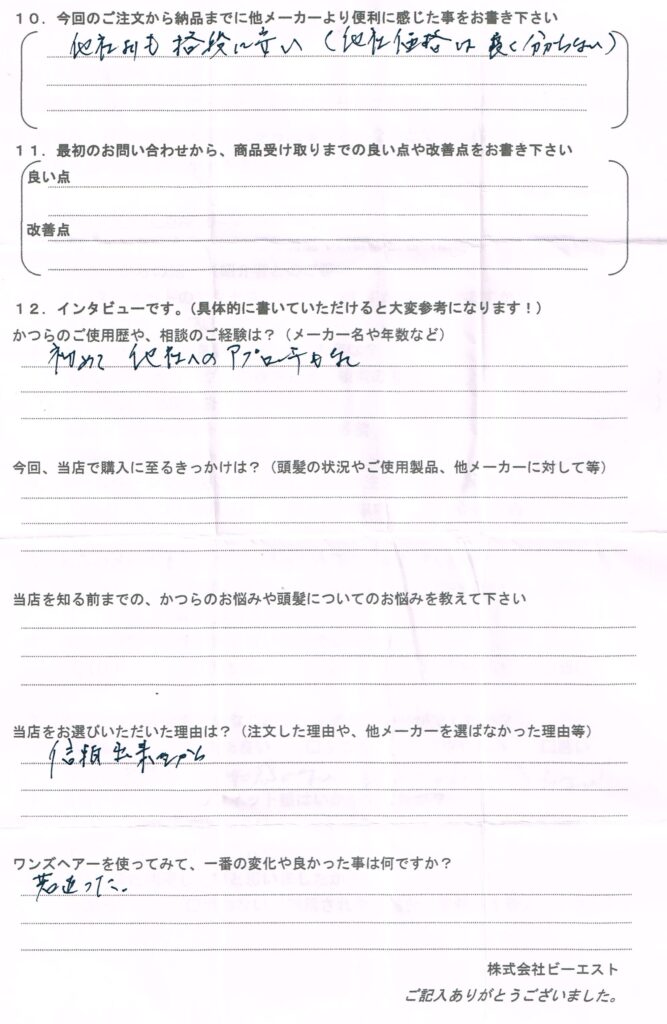 １０．今回のご注文から納品までに他メーカーより便利に感じた事をお書き下さい
他社よりも 格段に安い（他社価格は 良く分らない）
１１．最初のお問い合わせから、商品受け取りまでの良い点や改善点をお書き下さい
良い点
改善点
１２．インタビューです。（具体的に書いていただけると大変参考になります！）
かつらのご使用歴や、相談のご経験は？（メーカー名や年数など）
初めて 他社へのアプローチもなし
今回、当店で購入に至るきっかけは？（頭髪の状況やご使用製品、他メーカーに対して等）
当店を知る前までの、かつらのお悩みや頭髪についてのお悩みを教えて下さい
当店をお選びいただいた理由は？（注文した理由や、他メーカーを選ばなかった理由等）
信頼出来たから
ワンズヘアーを使ってみて、一番の変化や良かった事は何ですか？
若返った.
株式会社ビーエスト
ご記入ありがとうございました。